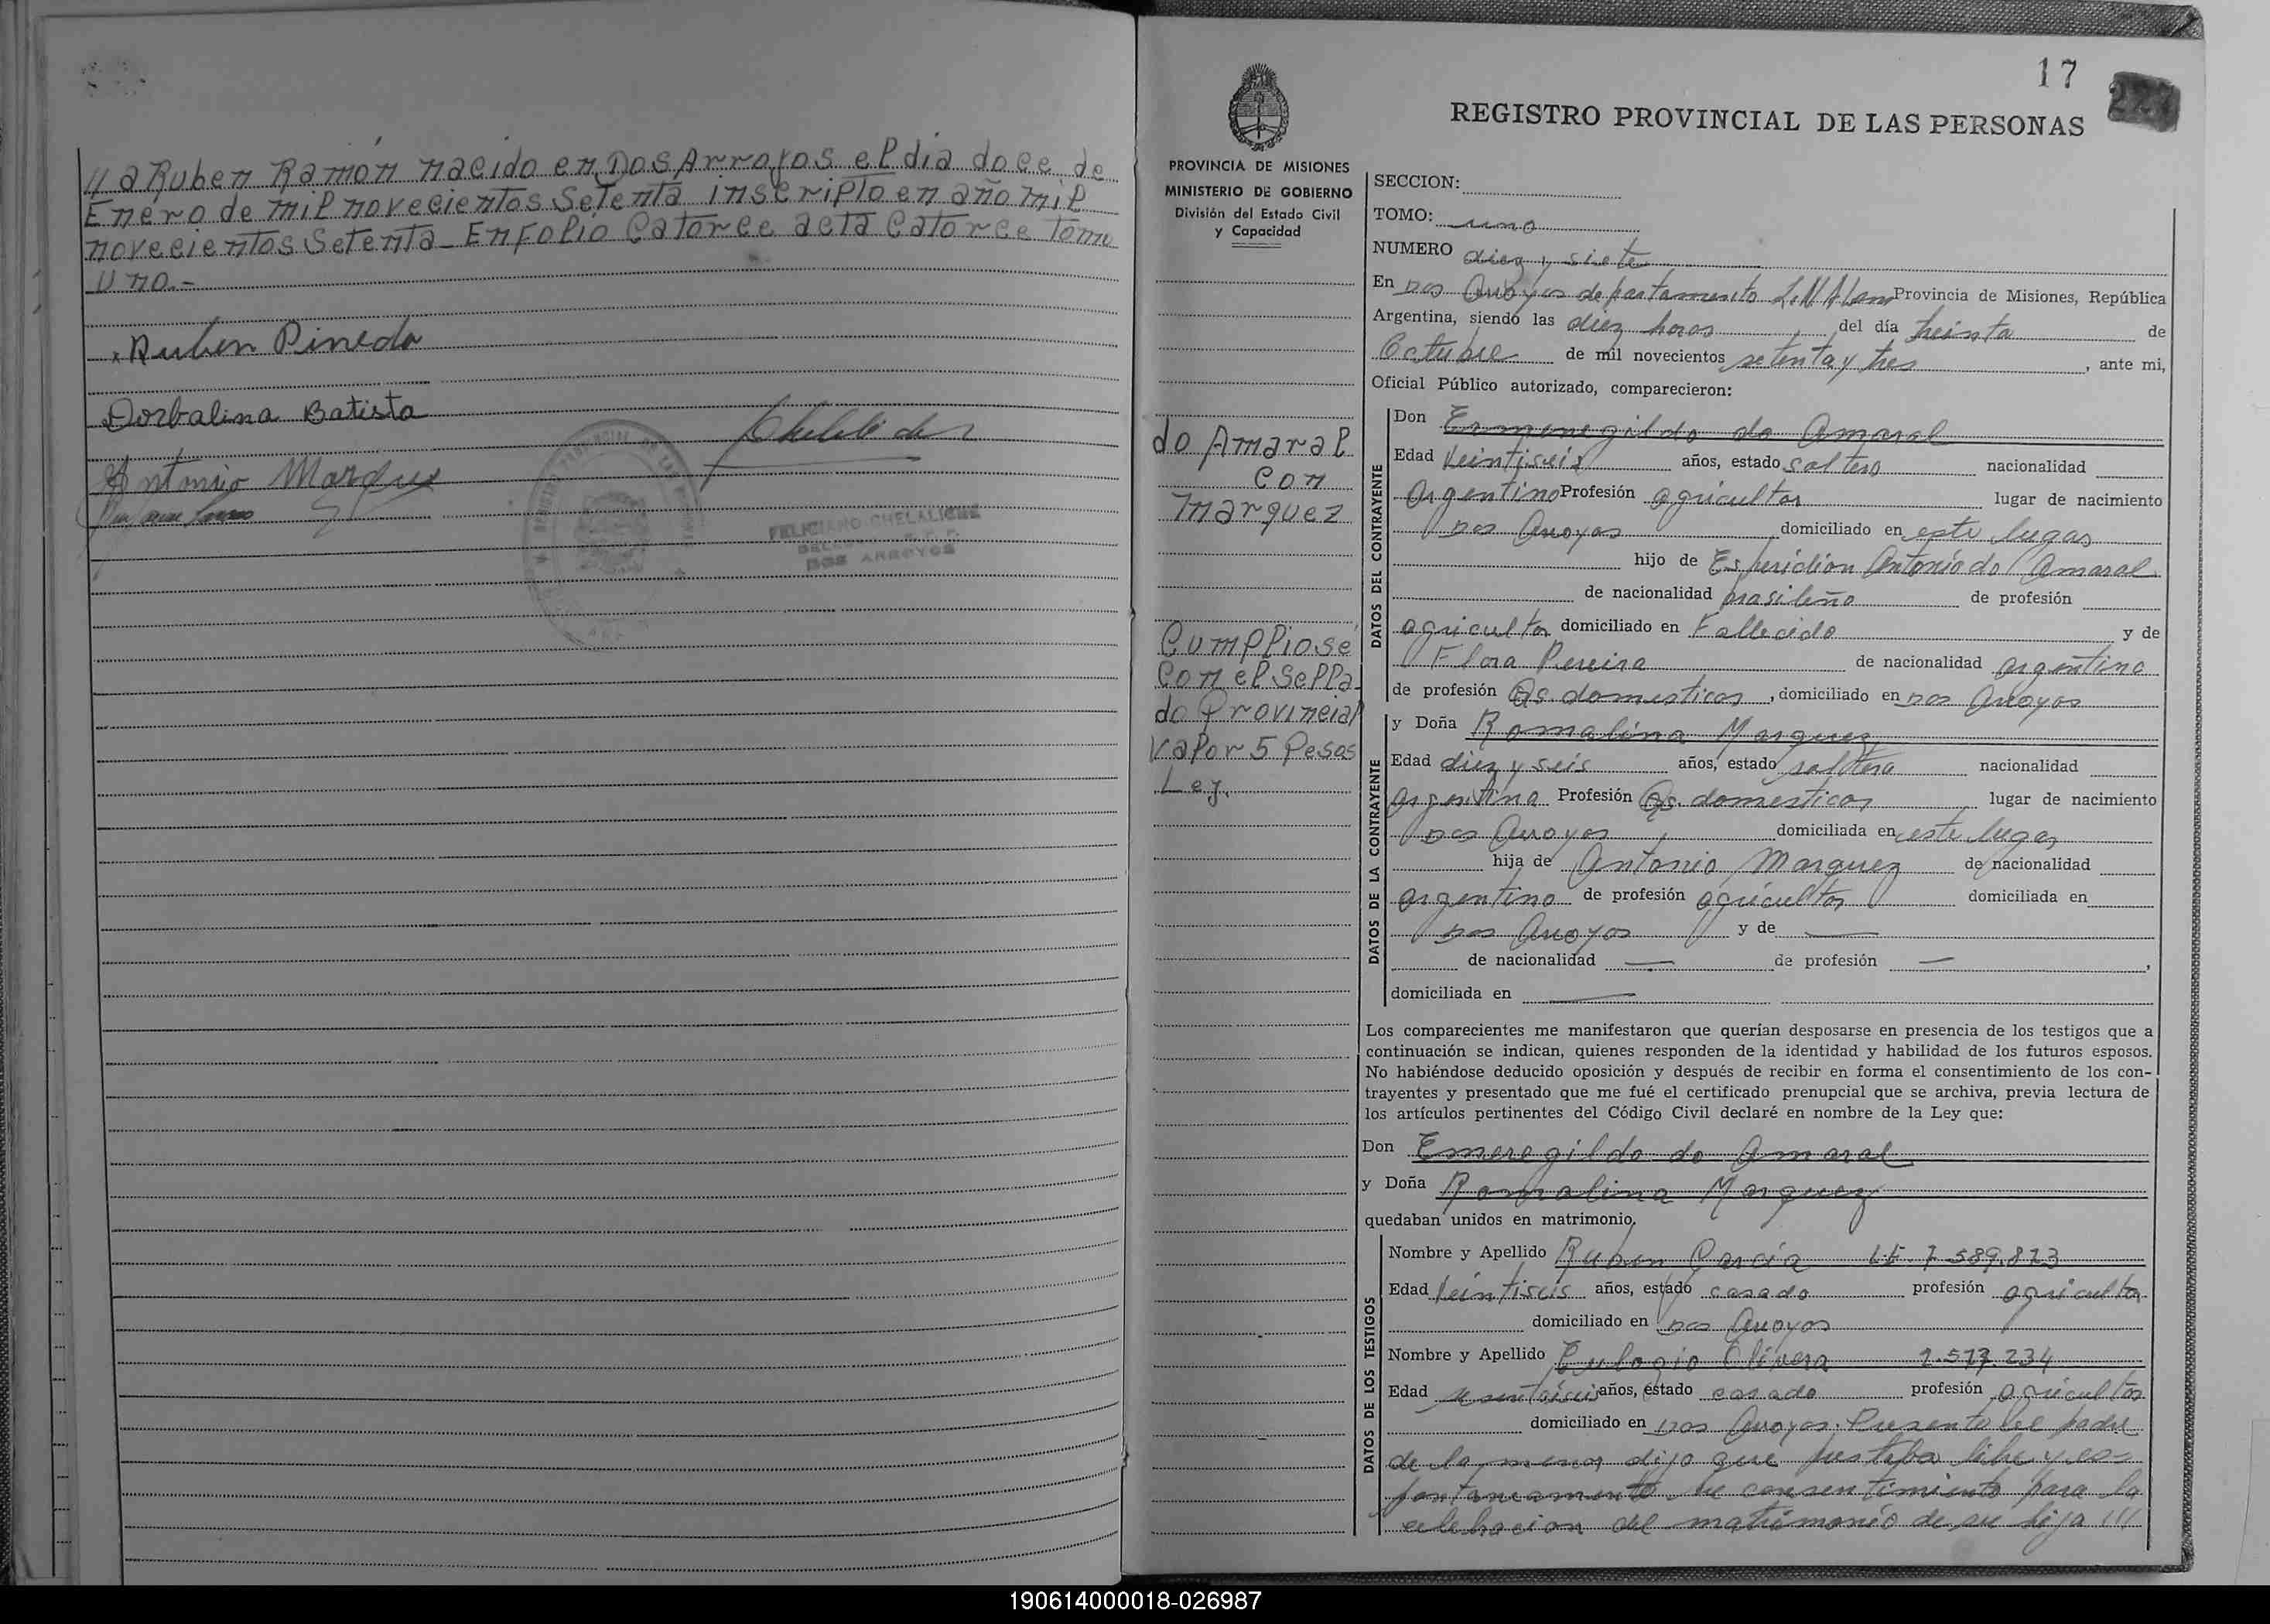 // a Ruben Ramón nacido en Dos Arroyos el dia doce de
Enero de mil novecientos Setenta inscripto en año mil
novecientos Setenta - En Folio Catorce acta Catorce Tomo
Uno.-
Ruben Pineda
Dorbalina Batista
Antonio Marques
FELICIANO CHELALICHE
DOS ARROYOS
17
227
REGISTRO PROVINCIAL DE LAS PERSONAS
PROVINCIA DE MISIONES
MINISTERIO DE GOBIERNO
División del Estado Civil
y Capacidad
do Amaral
con
Marquez
Cumpliose
Con el Sella
do Provincial
Valor 5 Pesos
Ley.
SECCION:
TOMO: uno
NUMERO diez y siete
En Dos Arroyos departamento L.N.Alem Provincia de Misiones, República
Argentina, siendo las diez horas del día treinta de
Octubre de mil novecientos setenta y tres, ante mi,
Oficial Público autorizado, comparecieron:
DATOS DEL CONTRAYENTE
Don Ermenegildo do Amaral
Edad Veintiseis años, estado soltero nacionalidad
Argentino Profesión agricultor lugar de nacimiento
Dos Arroyos domiciliado en este lugar
hijo de Esperidion Antonio do Amaral
de nacionalidad brasileño de profesión
agricultor domiciliado en Fallecido y de
Flora Pereira de nacionalidad argentina
de profesión Qs. domesticos, domiciliado en Dos Arroyos
DATOS DE LA CONTRAYENTE
y Doña Romalina Marquez
Edad diez y seis años, estado soltera nacionalidad
argentina Profesión Qs. domesticos lugar de nacimiento
Dos Arroyos domiciliada en este lugar
hija de Antonio Marquez de nacionalidad
argentino de profesión agricultor domiciliada en
Dos Arroyos y de —
de nacionalidad — de profesión —,
domiciliada en —
Los comparecientes me manifestaron que querían desposarse en presencia de los testigos que a
continuación se indican, quienes responden de la identidad y habilidad de los futuros esposos.
No habiéndose deducido oposición y después de recibir en forma el consentimiento de los con-
trayentes y presentado que me fué el certificado prenupcial que se archiva, previa lectura de
los artículos pertinentes del Código Civil declaré en nombre de la Ley que:
Don Emeregildo do Amaral
y Doña Romalina Marquez
quedaban unidos en matrimonio.
DATOS DE LOS TESTIGOS
Nombre y Apellido Ruben Garcia L.E. 7.589.823
Edad Veintiseis años, estado casado profesión agricultor
domiciliado en Dos Arroyos
Nombre y Apellido Eulogio Olivera 7.577.234
Edad años, estado casado profesión agricultor
domiciliado en Dos Arroyos. Presente el padre
de la menor dijo que prestaba libre y es-
pontaneamente su consentimiento para la
celebracion del matrimonio de su hija ///
190614000018-026987